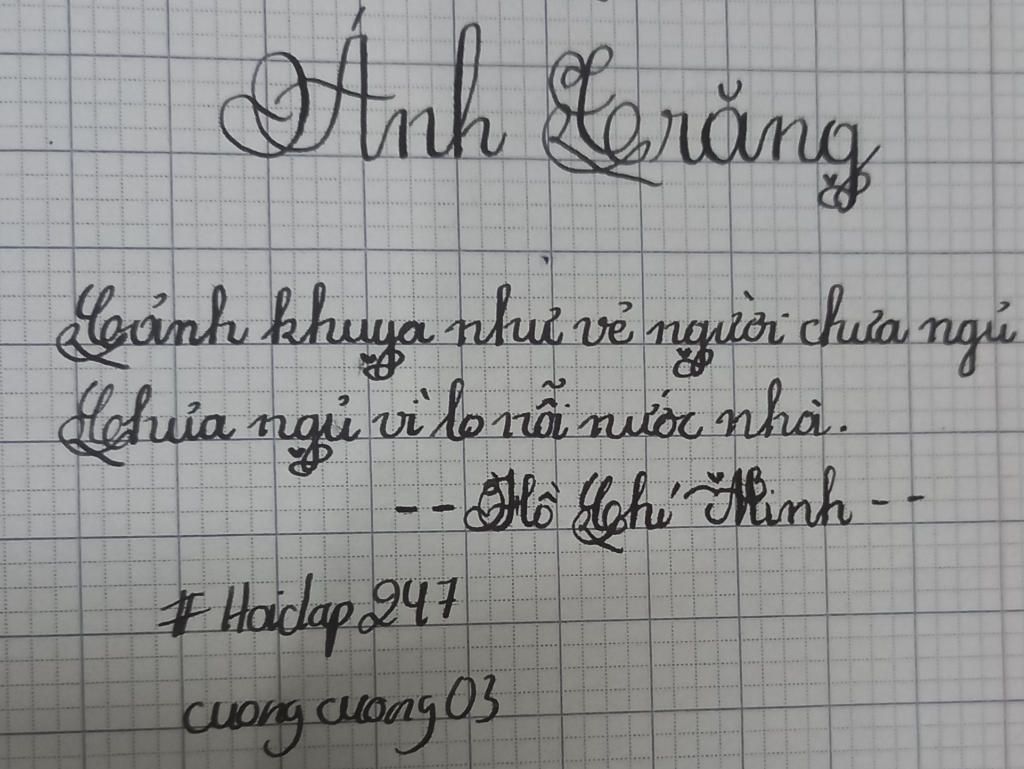 Ánh Trăng
Cảnh khuya như vẻ người chưa ngủ
Chưa ngủ vì lo nỗi nước nhà.
-- Hồ Chí Minh --
# Hoidap247
cuongcuong03